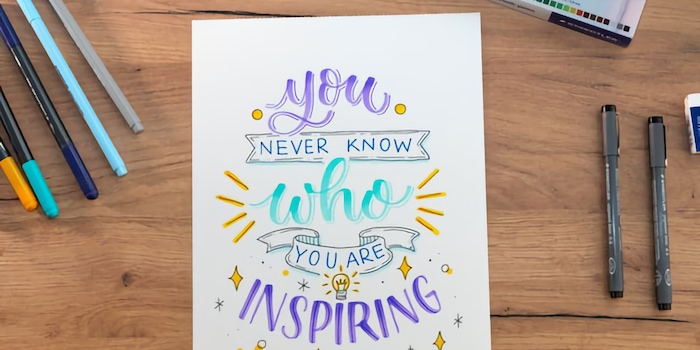 you
NEVER KNOW
who
YOU ARE
INSPIRING
STAEDTLER